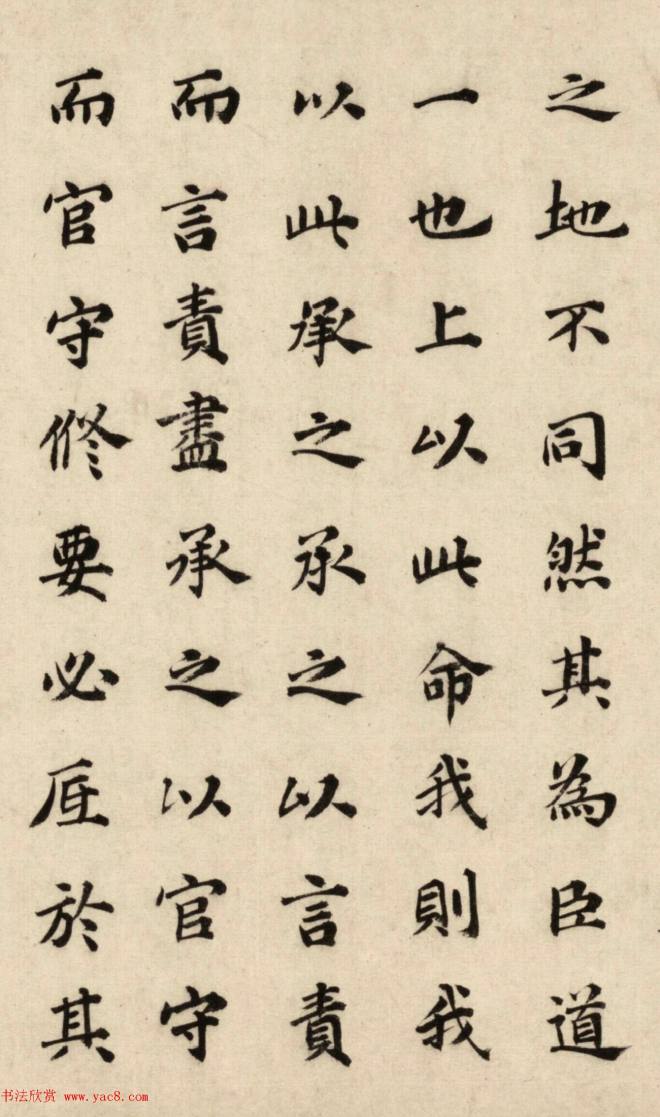 之地不同然其為臣道
一也上以此命我則我
以此承之承之以言責
而言責盡承之以官守
而官守修要必匡於其
书法欣赏 www.yac8.com